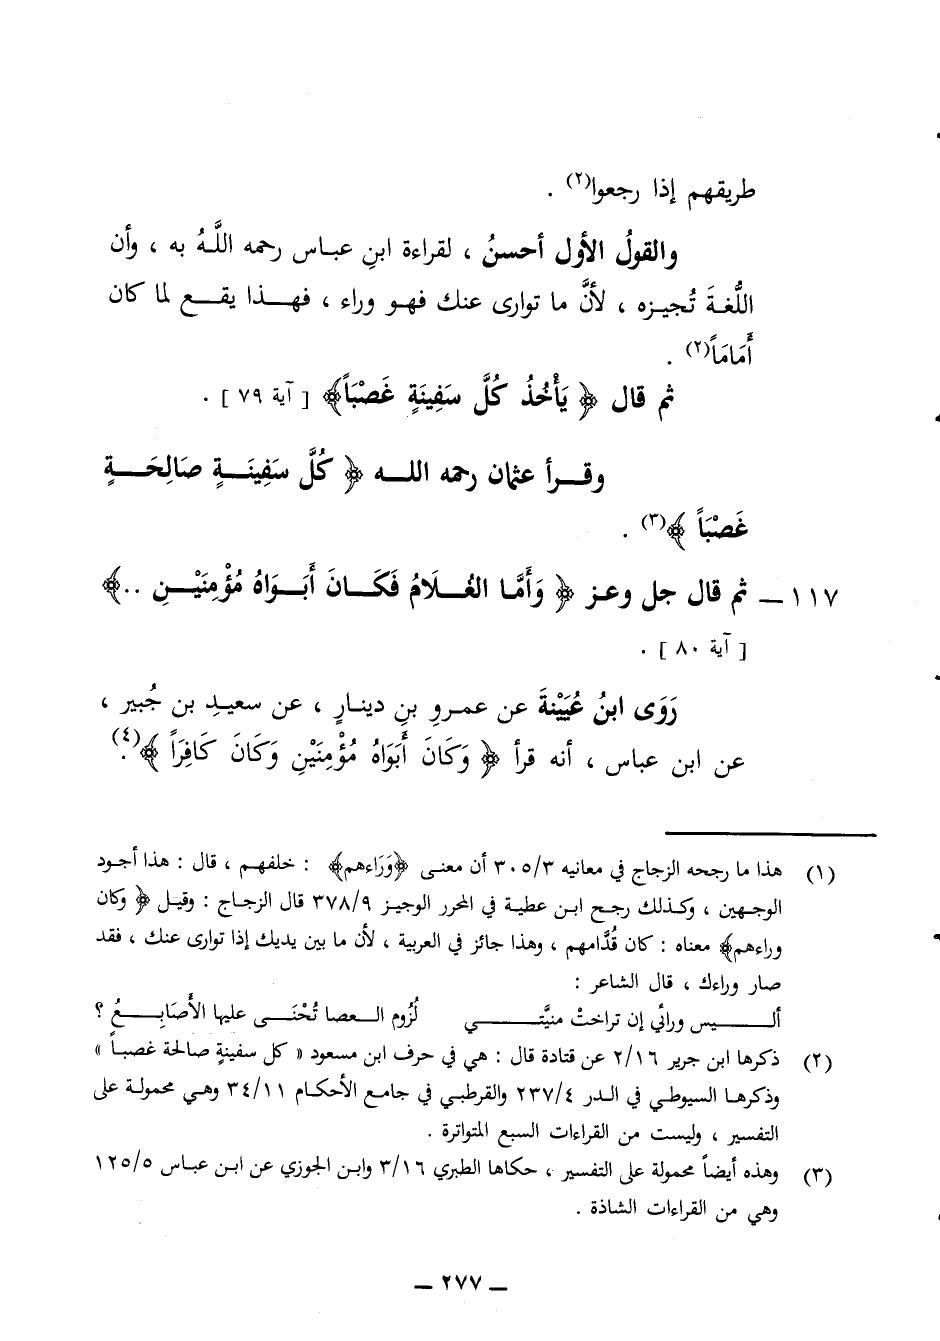 طريقهم إذا رجعوا(٢) .
والقولُ الأول أحسنُ ، لقراءة ابنِ عباس رحمه اللَّهُ به ، وأن
اللُّغةَ تُجيزه ، لأنَّ ما توارى عنك فهو وراء ، فهذا يقع لما كان
أَمَامَاً(٢) .
ثم قال ﴿ يَأْخُذُ كُلَّ سَفِينَةٍ غَصْبَاً﴾ [ آية ٧٩ ] .
وقرأ عثمان رحمه الله ﴿ كُلَّ سَفِينَةٍ صَالِحَةٍ
غَصْبَاً ﴾(٣) .
١١٧ ــ ثم قال جل وعز ﴿ وَأَمَّا الغُلَامُ فَكَانَ أَبَوَاهُ مُؤْمِنَيْنِ ..﴾
[ آية ٨٠ ] .
رَوَى ابنُ عُيَيْنةَ عن عمروِ بنِ دينارٍ ، عن سعيدِ بن جُبير ،
عن ابن عباس ، أنه قرأ ﴿ وَكَانَ أَبَوَاهُ مُؤْمِنَيْنِ وَكَانَ كَافِرَاً ﴾(٤).
(١) هذا ما رجحه الزجاج في معانيه ٣٠٥/٣ أن معنى ﴿وَرَاءهم﴾ : خلفهم ، قال : هذا أجود
الوجهين ، وكذلك رجح ابن عطية في المحرر الوجيز ٣٧٨/٩ قال الزجاج : وقيل ﴿ وكان
وراءهم﴾ معناه : كان قُدَّامهم ، وهذا جائز في العربية ، لأن ما بين يديك إذا توارى عنك ، فقد
صار وراءك ، قال الشاعر :
أليس ورائي إن تراختْ منيَّتي لُزُوم العصا تُحْنَى عليها الأَصَابِعُ ؟
(٢) ذكرها ابن جرير ٢/١٦ عن قتادة قال : هي في حرف ابن مسعود « كل سفينةٍ صالحة غصباً »
وذكرها السيوطي في الدر ٢٣٧/٤ والقرطبي في جامع الأحكام ٣٤/١١ وهي محمولة على
التفسير ، وليست من القراءات السبع المتواترة .
(٣) وهذه أيضاً محمولة على التفسير ، حكاها الطبري ٣/١٦ وابن الجوزي عن ابن عباس ١٢٥/٥
وهي من القراءات الشاذة .
ــ ٢٧٧ ــ